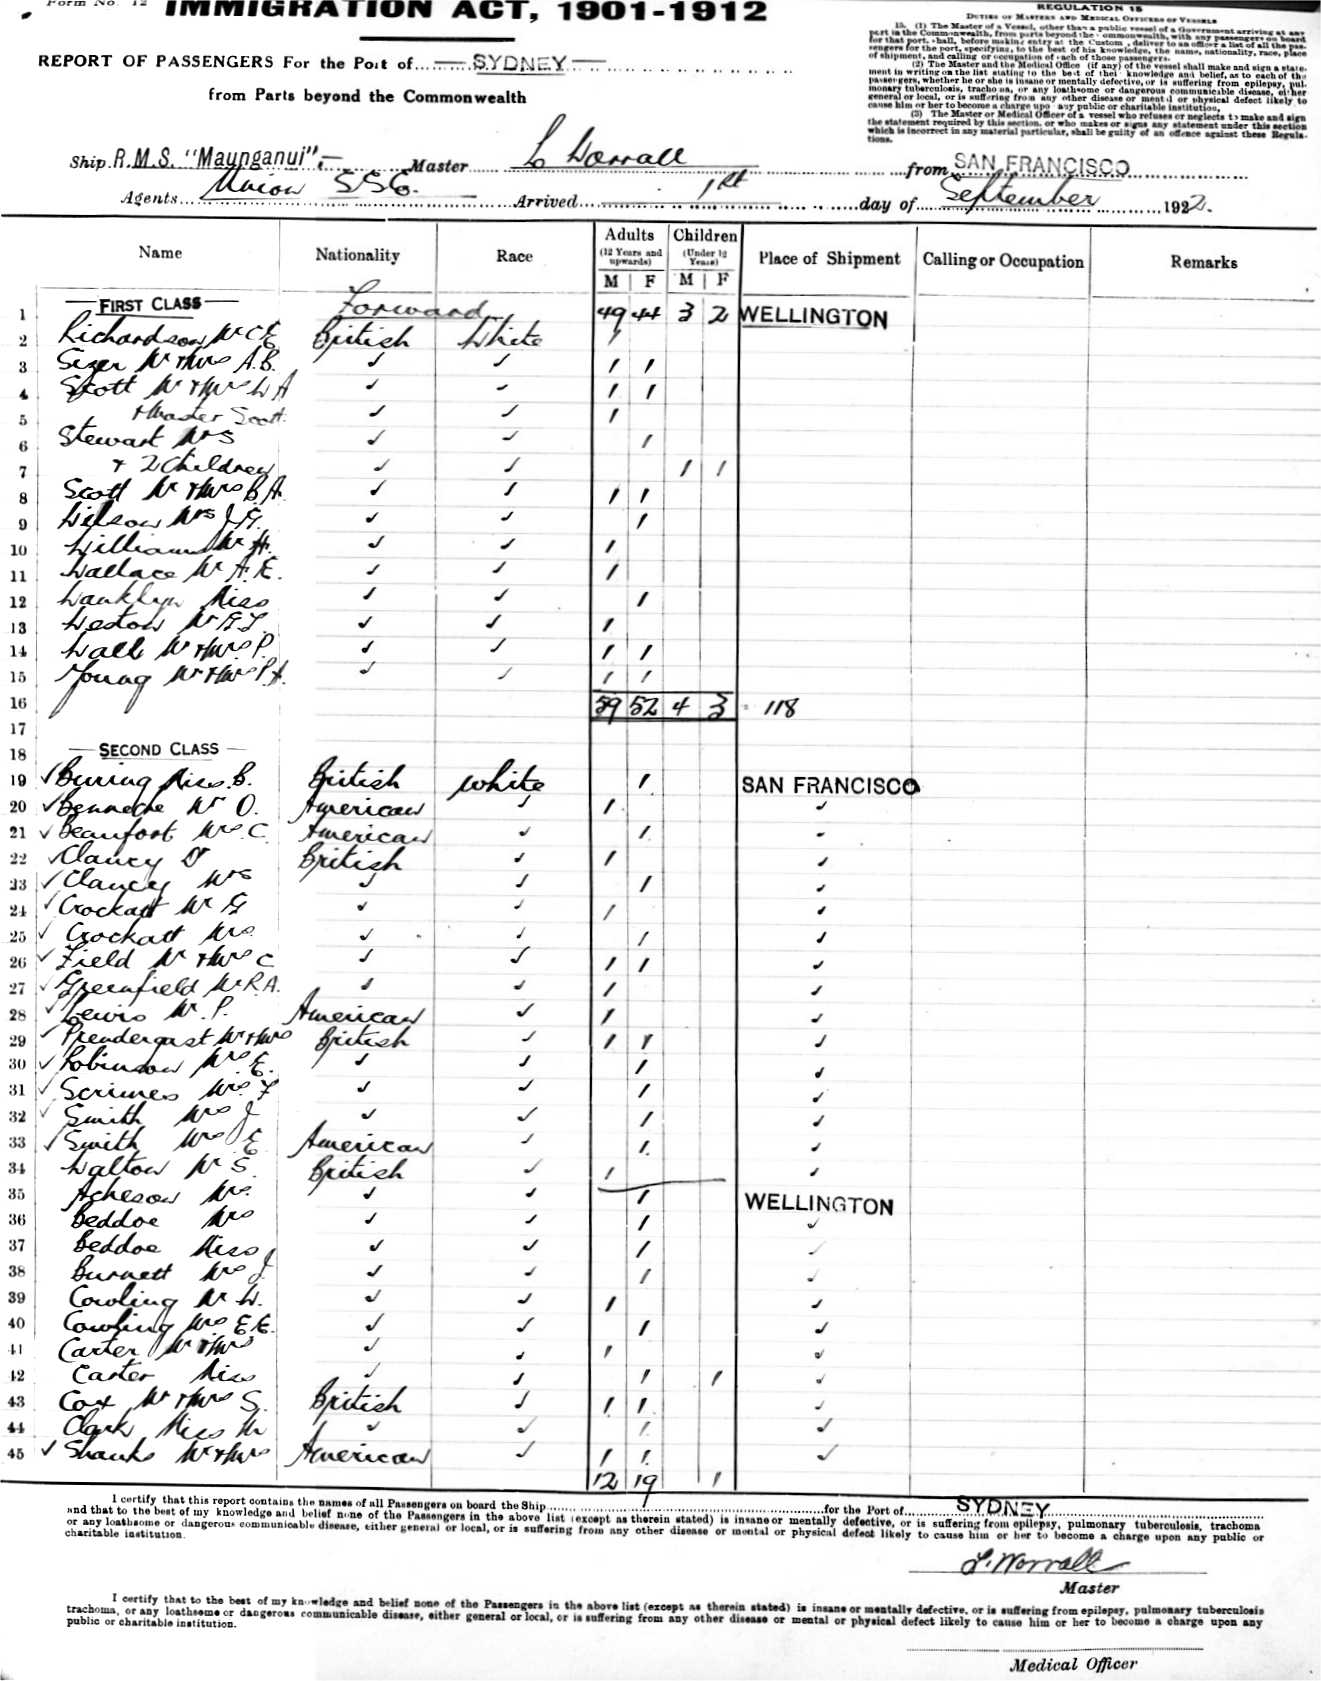 Form No. 12
IMMIGRATION ACT, 1901-1912
REPORT OF PASSENGERS For the Port of SYDNEY
from Parts beyond the Commonwealth
REGULATION 15
DUTIES OF MASTERS AND MEDICAL OFFICERS OF VESSELS
15. (1) The Master of a Vessel, other than a public vessel of a Government arriving at any
port in the Commonwealth, from parts beyond the Commonwealth, with any passengers on board
for that port, shall, before making entry at the Customs, deliver to an officer a list of all the pas-
sengers for the port, specifying, to the best of his knowledge, the name, nationality, race, place
of shipment, and calling or occupation of each of those passengers.
(2) The Master and the Medical Office (if any) of the vessel shall make and sign a state-
ment in writing on the list stating to the best of their knowledge and belief, as to each of the
passengers, whether he or she is insane or mentally defective, or is suffering from epilepsy, pul-
monary tuberculosis, trachoma, or any loathsome or dangerous communicable disease, either
general or local, or is suffering from any other disease or mental or physical defect likely to
cause him or her to become a charge upon any public or charitable institution,
(3) The Master or Medical Officer of a vessel who refuses or neglects to make and sign
the statement required by this section, or who makes or signs any statement under this section
which is incorrect in any material particular, shall be guilty of an offence against these Regula-
tions.
Ship R.M.S. "Maunganui", Master L Worrall from SAN FRANCISCO
Agents Union SSCo. Arrived 1st day of September 1922.
Name Nationality Race Adults (12 Years and upwards) M F Children (Under 12 Years) M F Place of Shipment Calling or Occupation Remarks
1 FIRST CLASS Forward 49 44 3 2 WELLINGTON
2 Richardson Mr C E British White 1
3 Sizer Mr & Mrs A.B. ✓ ✓ 1 1
4 Scott Mr & Mrs W A ✓ ✓ 1 1
5 & Master Scott ✓ ✓ 1
6 Stewart Mrs ✓ ✓ 1
7 + 2 Children ✓ ✓ 1 1
8 Scott Mr & Mrs B.A. ✓ ✓ 1 1
9 Wilson Mrs J.G. ✓ ✓ 1
10 Williams Mr H. ✓ ✓ 1
11 Wallace Mr A.E. ✓ ✓ 1
12 Wanklyn Miss ✓ ✓ 1
13 Weston Mr ✓ ✓ 1
14 Wall Mr & Mrs P. ✓ ✓ 1 1
15 Young Mr & Mrs P.H. ✓ ✓ 1 1
16 59 52 4 3 = 118
17
18 SECOND CLASS
19 ✓ Burring Miss B. British white 1 SAN FRANCISCO
20 ✓ Bennecke Mr O. American ✓ 1 ✓
21 ✓ Beaufort Mrs. C. American ✓ 1 ✓
22 ✓ Clancy Dr British ✓ 1 ✓
23 ✓ Clancy Mrs ✓ ✓ 1 ✓
24 ✓ Crockatt Mr G ✓ ✓ 1 ✓
25 ✓ Crockatt Mrs ✓ ✓ 1 ✓
26 ✓ Field Mr & Mrs C ✓ ✓ 1 1 ✓
27 ✓ Greenfield Mr R.A. ✓ ✓ 1 ✓
28 ✓ Lewis Mr. P. American ✓ 1 ✓
29 ✓ Prendergast Mr & Mrs British ✓ 1 1 ✓
30 ✓ Robinson Mrs E. ✓ ✓ 1 ✓
31 ✓ Scrimes Mrs. F ✓ ✓ 1 ✓
32 ✓ Smith Mrs J ✓ ✓ 1 ✓
33 ✓ Smith Mrs E American ✓ 1 ✓
34 Walton Mr S. British ✓ 1 ✓
35 Acheson Mrs. ✓ ✓ 1 WELLINGTON
36 Beddoe Mrs ✓ ✓ 1 ✓
37 Beddoe Miss ✓ ✓ 1 ✓
38 Burnett Mrs J. ✓ ✓ 1 ✓
39 Cowling Mr W. ✓ ✓ 1 ✓
40 Cowling Mrs E.E. ✓ ✓ 1 ✓
41 Carter Mr & Mrs ✓ ✓ 1 ✓
42 Carter Miss ✓ ✓ 1 1 ✓
43 Cox Mr & Mrs S. British ✓ 1 1 ✓
44 Clark Miss M ✓ ✓ 1 ✓
45 ✓ Shanks Mr & Mrs American ✓ 1 1 ✓
12 19 1
I certify that this report contains the names of all Passengers on board the Ship for the Port of SYDNEY
and that to the best of my knowledge and belief none of the Passengers in the above list (except as therein stated) is insane or mentally defective, or is suffering from epilepsy, pulmonary tuberculosis, trachoma
or any loathsome or dangerous communicable disease, either general or local, or is suffering from any other disease or mental or physical defect likely to cause him or her to become a charge upon any public or
charitable institution.
L. Worrall
Master
I certify that to the best of my knowledge and belief none of the Passengers in the above list (except as therein stated) is insane or mentally defective, or is suffering from epilepsy, pulmonary tuberculosis
trachoma, or any loathsome or dangerous communicable disease, either general or local, or is suffering from any other disease or mental or physical defect likely to cause him or her to become a charge upon any
public or charitable institution.
Medical Officer